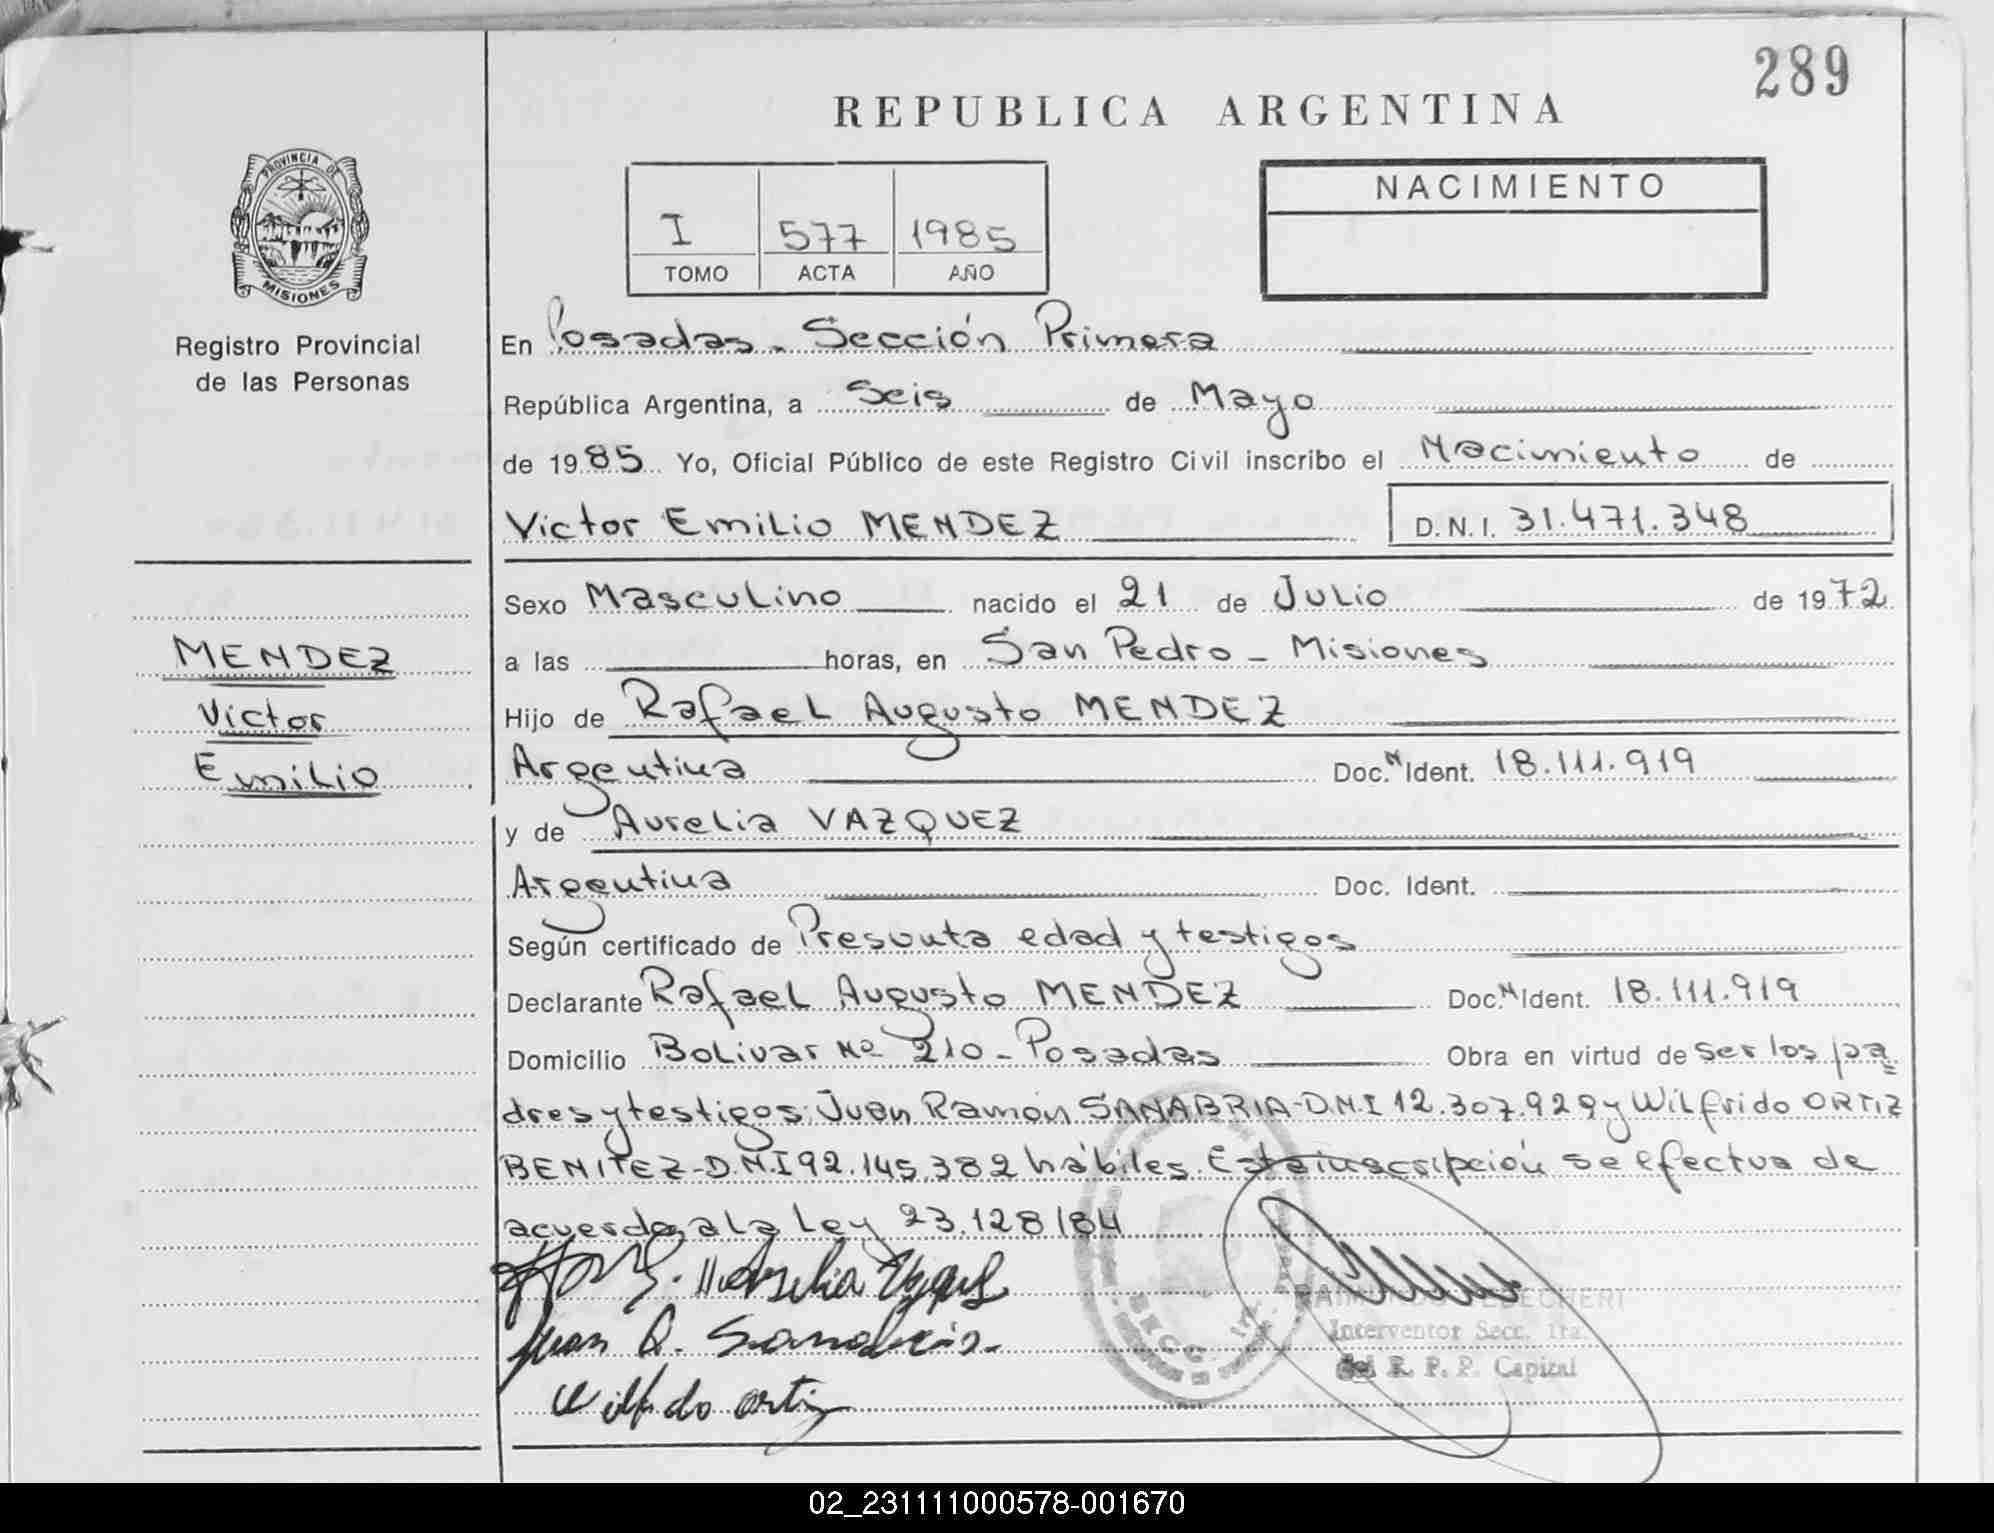 289
REPUBLICA ARGENTINA
PROVINCIA DE
MISIONES
Registro Provincial
de las Personas
I 577 1985
TOMO ACTA AÑO
NACIMIENTO
En Posadas - Sección Primera
República Argentina, a Seis de Mayo
de 1985 Yo, Oficial Público de este Registro Civil inscribo el Nacimiento de
Victor Emilio MENDEZ D.N.I. 31.471.348
Sexo Masculino nacido el 21 de Julio de 1972
MENDEZ
Victor
Emilio
a las horas, en San Pedro - Misiones
Hijo de Rafael Augusto MENDEZ
Argentina Doc. N Ident. 18.111.919
y de Aurelia VAZQUEZ
Argentina Doc. Ident.
Según certificado de Presunta edad y testigos
Declarante Rafael Augusto MENDEZ Doc. N Ident. 18.111.919
Domicilio Bolivar Nº 210 - Posadas Obra en virtud de ser los pa
dres y testigos: Juan Ramón SANABRIA - D.N.I 12.307.929 y Wilfrido ORTIZ
BENITEZ - D.N.I 92.145.382 hábiles. Esta inscripción se efectua de
acuerdo a la Ley 23.128/84
Aurelia
Juan R. Sanabria
Wilfrido Ortiz
SECC. 1ra.
Interventor Secc. 1ra.
del R. P. P. Capital
02_231111000578-001670